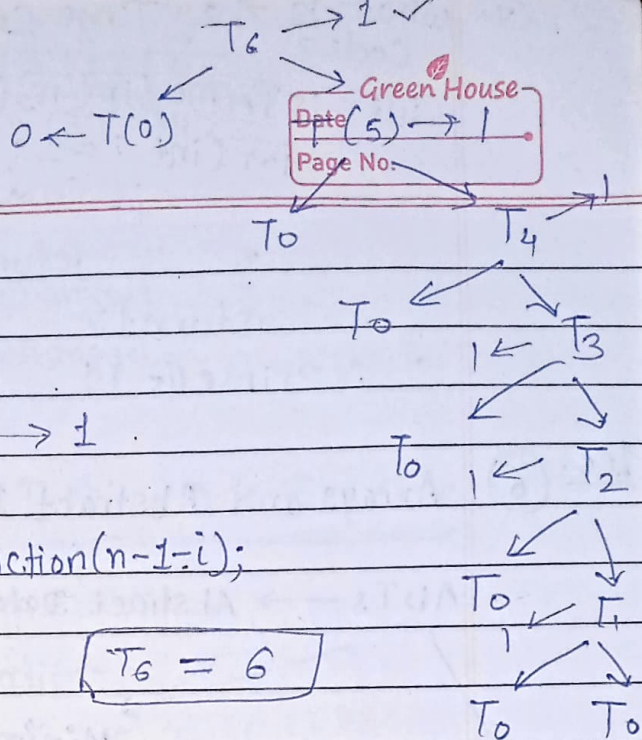 T6 → 1
Green House
0 ← T(0)
Date T(5) → 1
Page No.
T0 T4 → 1
T0 T3
1 ←
→ 1
T0 1 ← T2
ction(n-1-i);
T0 T1
1 ←
T6 = 6
T0 T0